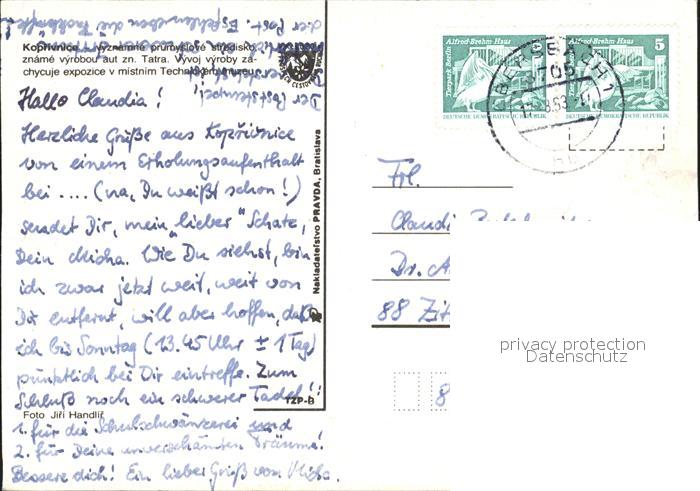 Kopřivnice - významné průmyslové středisko,
známé výrobou aut zn. Tatra. Vývoj výroby za-
chycuje expozice v místním Technickém muzeu.
Hallo Claudia!
Herzliche Grüße aus Kopřivnice
von einem Erholungsaufenthalt
bei .... (na, Du weißt schon!)
sendet Dir, mein „lieber" Schatz,
Dein Micha. Wie Du siehst, bin
ich zwar jetzt weit, weit von
Dir entfernt, will aber hoffen, daß
ich bis Sonntag (13.45 Uhr ± 1 Tag)
pünktlich bei Dir eintreffe. Zum
Schluß noch ein schwerer Tadel!:
Foto Jiří Handlíř
1. für die Schulschwänzerei und
2. für Deine unverschämten Träume!
Bessere dich! Ein lieber Gruß von Micha.
Nakladatelství PRAVDA, Bratislava
TZP-B
Alfred-Brehm-Haus
Tierpark Berlin
5
DEUTSCHE DEMOKRATISCHE REPUBLIK
Alfred-Brehm-Haus
5
DEUTSCHE DEMOKRATISCHE REPUBLIK
Frl.
Claudi
Dr. A
88 Zit
8
privacy protection
Datenschutz